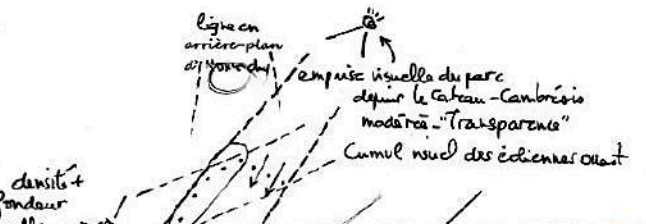 ligne en
arrière-plan
emprise visuelle du parc
depuis le Cateau-Cambrésis
modérée - "Transparence"
Cumul visuel des éoliennes ouest
densité +